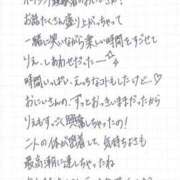 お話たくさん盛り上がっちゃって
一緒に笑いながら楽しい時間をすごせて
りぇ、しあわせだったー
時間いっぱい、えっちなコトもしたけど♡
おにいさんの、ずっとおっきいままだったから
りえもずっと興奮しちゃったの!
二人の体が密着して、気持ちよさも
最高潮に達しちゃったね